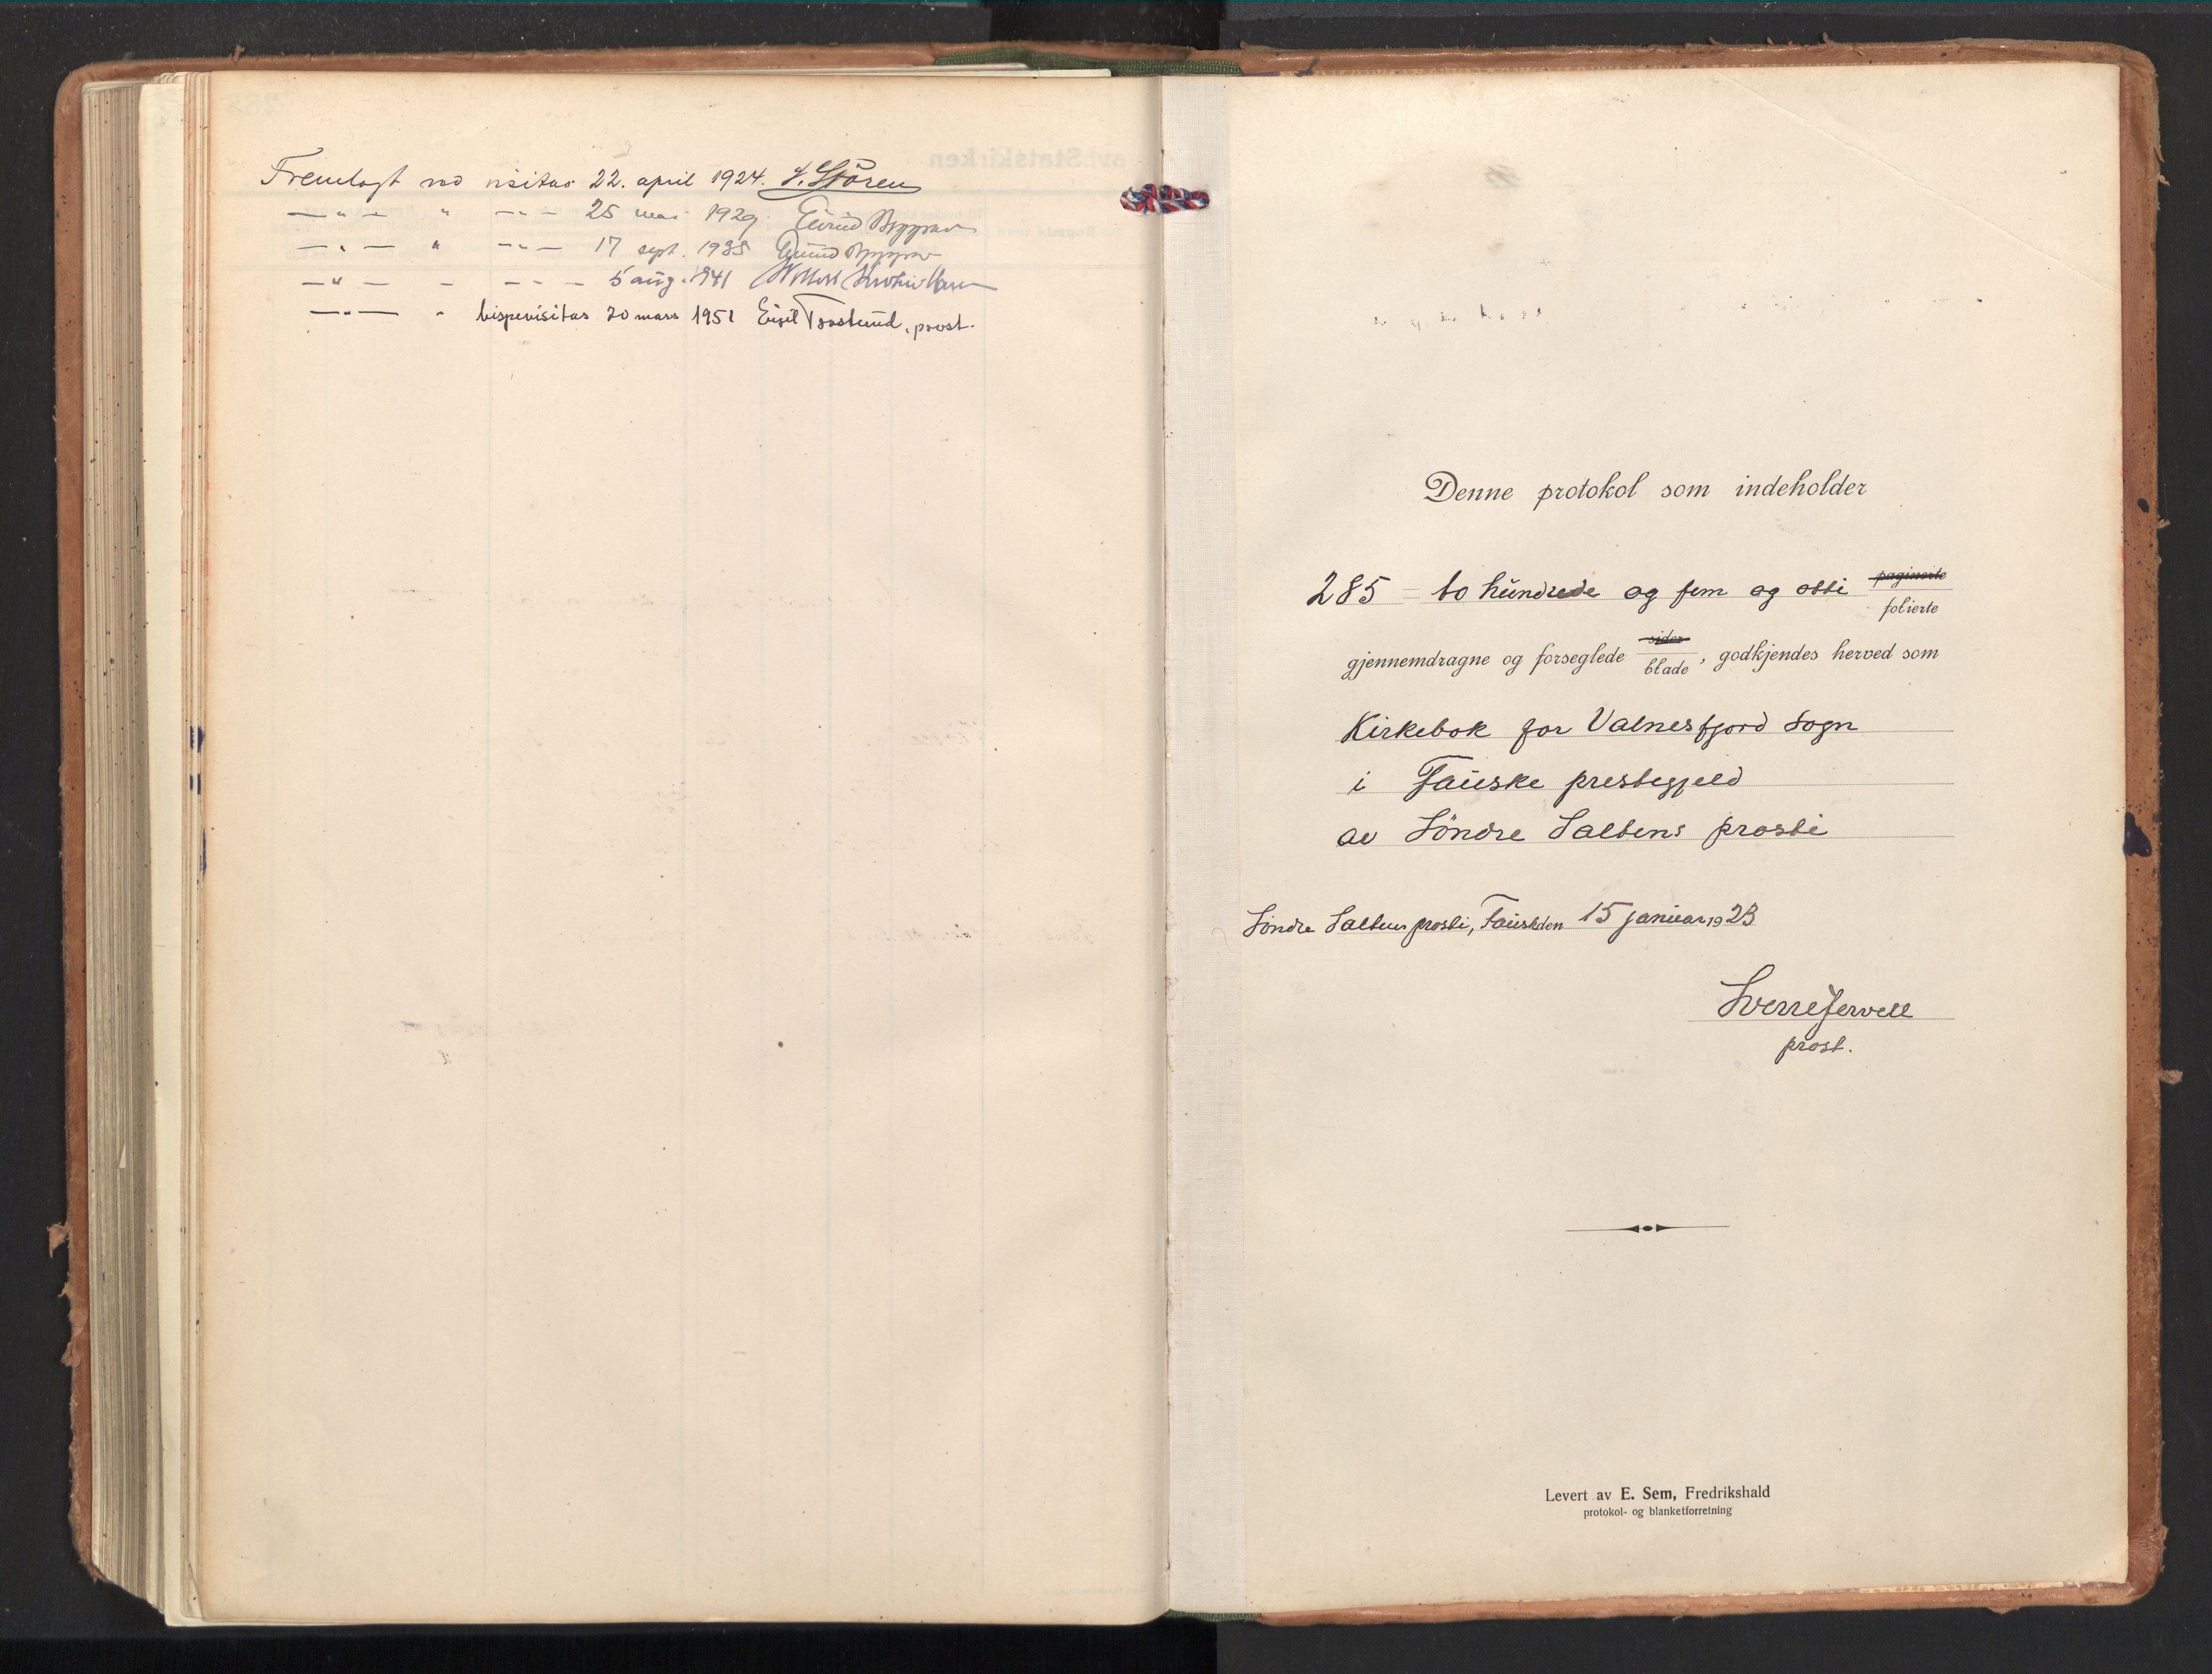 Fremlagt ved visitas 22. april 1924. J. Støren
— " — " — " — 25 mai 1929. Eivind Berggrav
— " — " — " — 17 sept. 1935 Eivind Berggrav
— " — " — " — 5 aug. 1941
— " — " bispevisitas 20 mars 1951 Eigil Trostlund, prost.
Denne protokol som indeholder
285 = to hundrede og fem og otti paginerte
folierte
gjennemdragne og forseglede sider blade, godkjendes herved som
Kirkebok for Valnesfjord Sogn
i Fauske prestegjeld
av Söndre Saltens prosti
Söndre Saltens prosti, Fauske den 15 januar 1923
Sverre Jervell
prost.
Levert av E. Sem, Fredrikshald
protokol- og blanketforretning